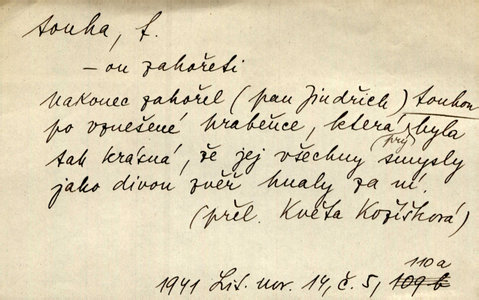 touha, f.
– ou zahořeti
nakonec zahořel (pan Jindřich) touhou
po vznešené hraběnce, která prý byla
tak krásná, že jej všechny smysly
jako divou zvěř hnaly za ní.
(přel. Květa Kozíšková)
110a
1941 Lis. nov. 14, č. 5, 109 b